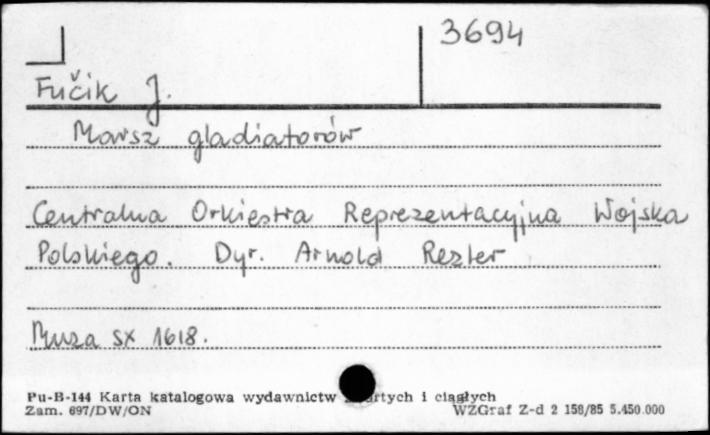 3694
Fučik J.
Marsz gladiatorów
Centralna Orkiestra Reprezentacyjna Wojska
Polskiego. Dyr. Arnold Rezler
Muza SX 1618.
Pu-B-144 Karta katalogowa wydawnictw i ciągłych
Zam. 697/DW/ON WZGraf Z-d 2 158/85 5.450.000